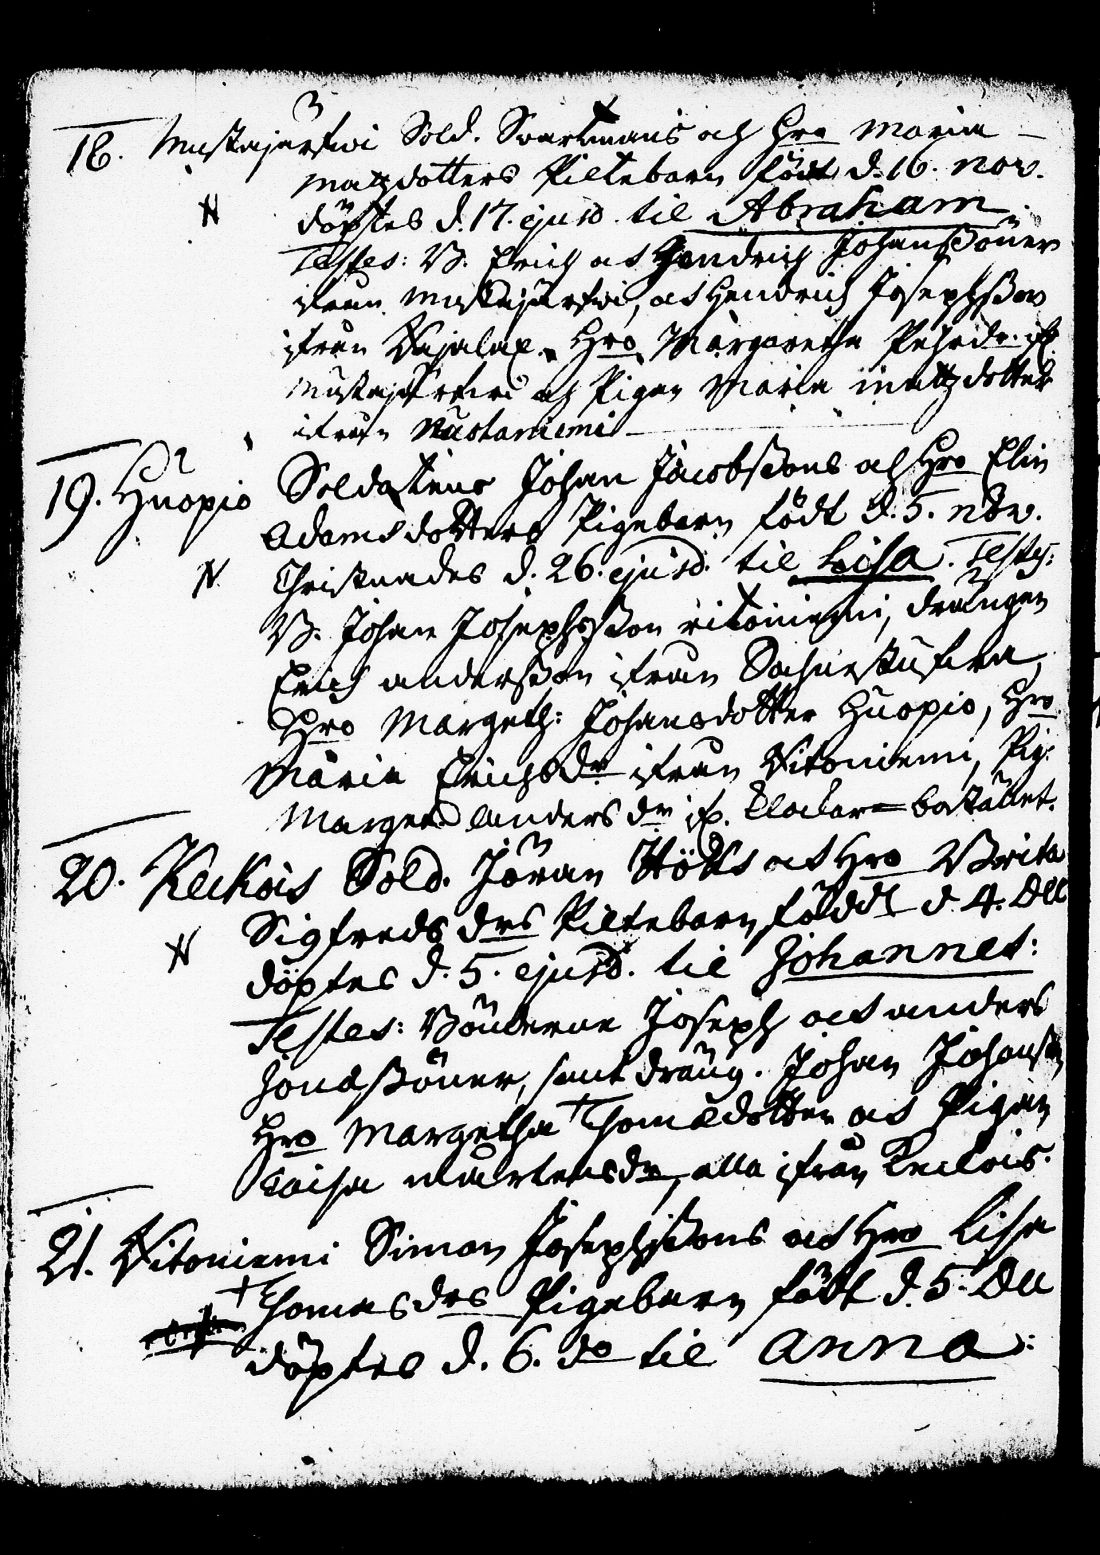 18. Mustajärfwi Sold. Svartmans och Hro Maria
Matzdotters Piltebarn född d. 16. Nov.
döptes d. 17. ejusd. til Abraham.
Testes: B. Erich och Hendrich Johansßöner
ifrån Mustajärfwi, och Hendrich Josephsßon
ifrån Wajalax. Hro Margaretha Pehrsdr. if.
Mustajärfwi och Pigan Maria Mattzdotter
ifrån Ruotaniemi
19. Huopio Soldatens Johan Jacobßons och Hro Elin
Adamsdotters Pigebarn född d. 5. Nov.
Christnades d. 26. ejusd. til Lisa. Testes:
B. Johan Josephsßon Vitoniemi, drängen
Erich Anderßon ifrån
Hro Margeth: Johansdotter Huopio, Hro
Maria Erichsdr ifrån Vitoniemi, Pig.
Margeta Andersdr if. Klockarebostället.
20. Keckois Sold. Jöran Stöds och Hro Brita
Sigfredsdrs Piltebarn född d. 4. Dec
döptes d. 5. ejusd. til Johannes:
Testes: Bönderne Joseph och Anders
Jonæßöner, samt dräng. Johan Johansßon
Hro Margetha Thomædotter och Pigan
Caisa Mårtensdr, alla ifrån Keckois.
21. Vitoniemi Simon Josephsßons och Hro Lisa
Thomasdrs Pigebarn född d. 5. Dec
döptes d. 6. do til Anna: